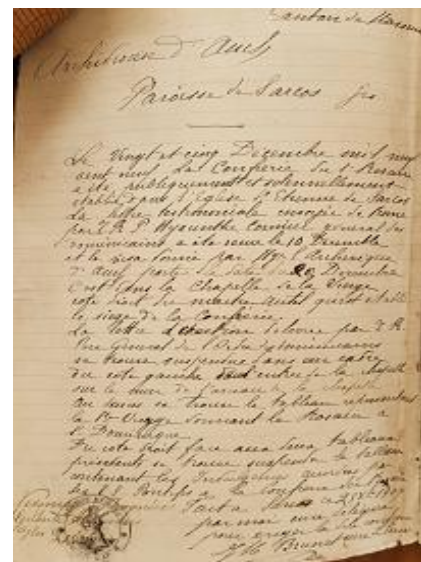 Canton de
Archidiocèse d'Auch
Paroisse de Sarcos
Le Vingt et cinq Décembre mil neuf
cent neuf la Confrérie du St Rosaire
a été publiquement et solennellement
établie dans l'Eglise St Etienne de Sarcos
La lettre testimoniale envoyée de Rome
par T. R. P. Hyacinthe Cormier général des
Dominicains a été reçue le 10 Décembre
et le visa donné par Mgr l'Archevêque
d'Auch porte la date du 20 Décembre
C'est dans la Chapelle de la Vierge
côté droit du maître autel qu'est établi
le siège de la Confrérie.
La lettre d'érection délivrée par T. R.
Père Général de l'Ordre des Dominicains
se trouve suspendue dans un cadre
du côté gauche entrée de la chapelle
sur le mur de la chapelle
Au dessus se trouve le tableau représentant
la Ste Vierge donnant le Rosaire à
St Dominique
Du côté droit face aux deux tableaux
précédents se trouve suspendu le tableau
contenant les Indulgences accordées par
les Pontifes à la Confrérie du
Fait à Sarcos ce 25
par moi curé délégué
pour ériger la dite confrérie
Brunet curé